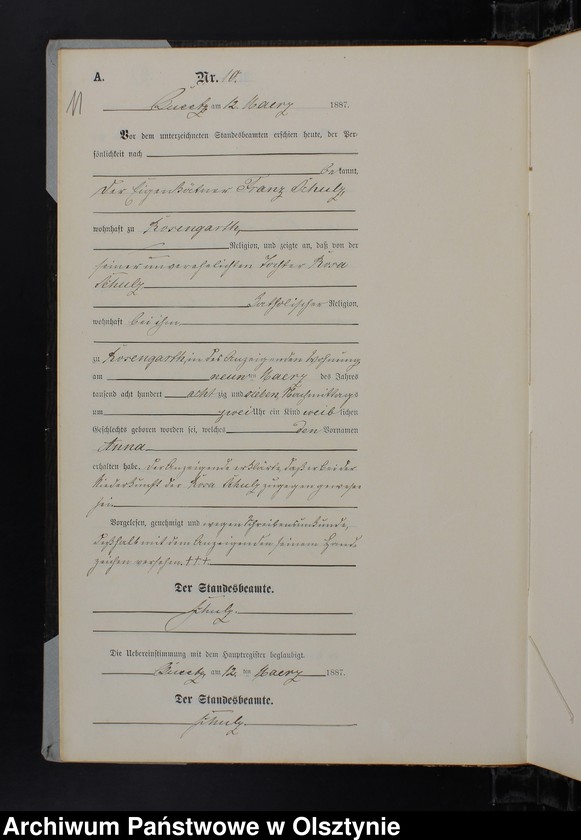 A. Nr. 10.
11
am 12. Maerz 1887.
Vor dem unterzeichneten Standesbeamten erschien heute, der Per-
sönlichkeit nach
bekannt,
der Eigenkätner Franz Schulz,
wohnhaft zu Rosengarth,
Religion, und zeigte an, daß von der
seiner unverehelichten Tochter Rosa
Schulz
katholischer Religion,
wohnhaft bei ihm
zu Rosengarth, in des Anzeigenden Wohnung
am neun ten Maerz des Jahres
tausend acht hundert achtzig und sieben Nachmittags
um zwei Uhr ein Kind weiblichen
Geschlechts geboren worden sei, welches den Vornamen
Anna
erhalten habe. Der Anzeigende erklärte, daß er bei der
Niederkunft der Rosa Schulz zugegen gewesen
sei
Vorgelesen, genehmigt und wegen Schreibensunkunde,
deßhalb mit dem Anzeigenden seinem Hand-
zeichen versehen. +++
Der Standesbeamte.
Schulz.
Die Uebereinstimmung mit dem Hauptregister beglaubigt.
am 12. ten Maerz 1887.
Der Standesbeamte.
Schulz.
Archiwum Państwowe w Olsztynie